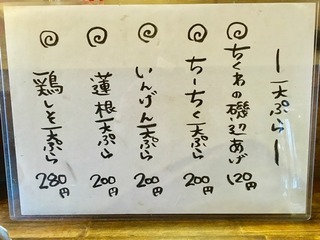 ー天ぷらー
ちくわの磯辺あげ 120円
ちーちく天ぷら 200円
いんげん天ぷら 200円
蓮根天ぷら 200円
鶏しそ天ぷら 280円